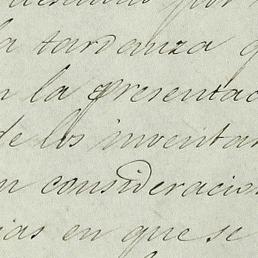 la tardanza
la presentac
de los inventar
n consideracion
ias en que se